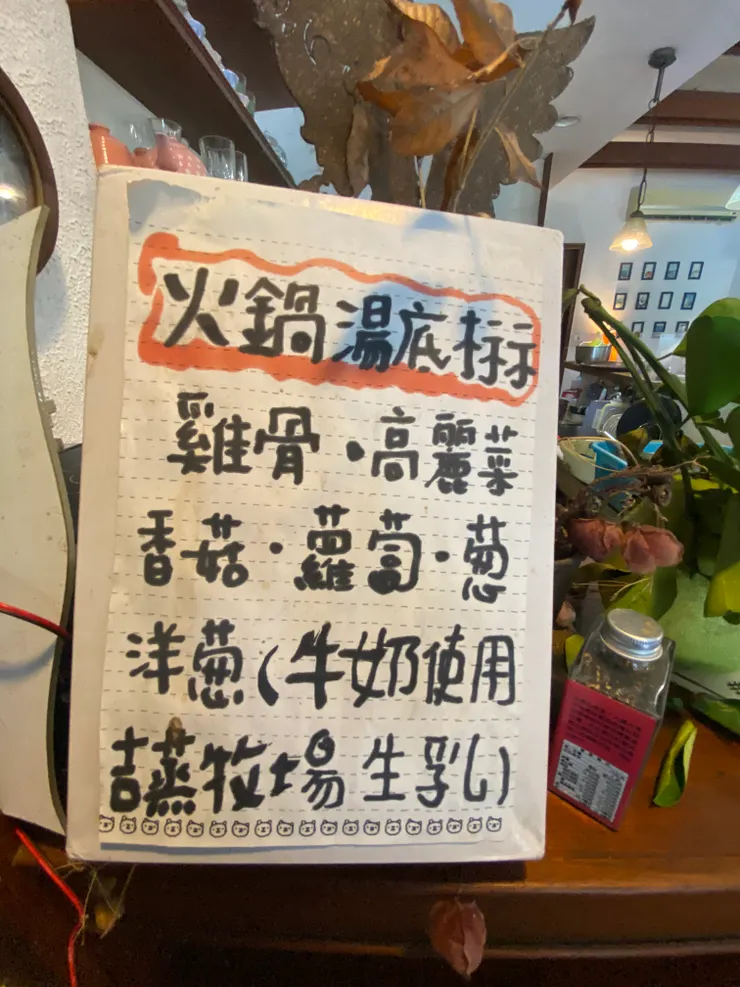 火鍋湯底標示
雞骨·高麗菜
香菇·蘿蔔·蔥
洋蔥(牛奶使用
吉蒸牧場生乳)